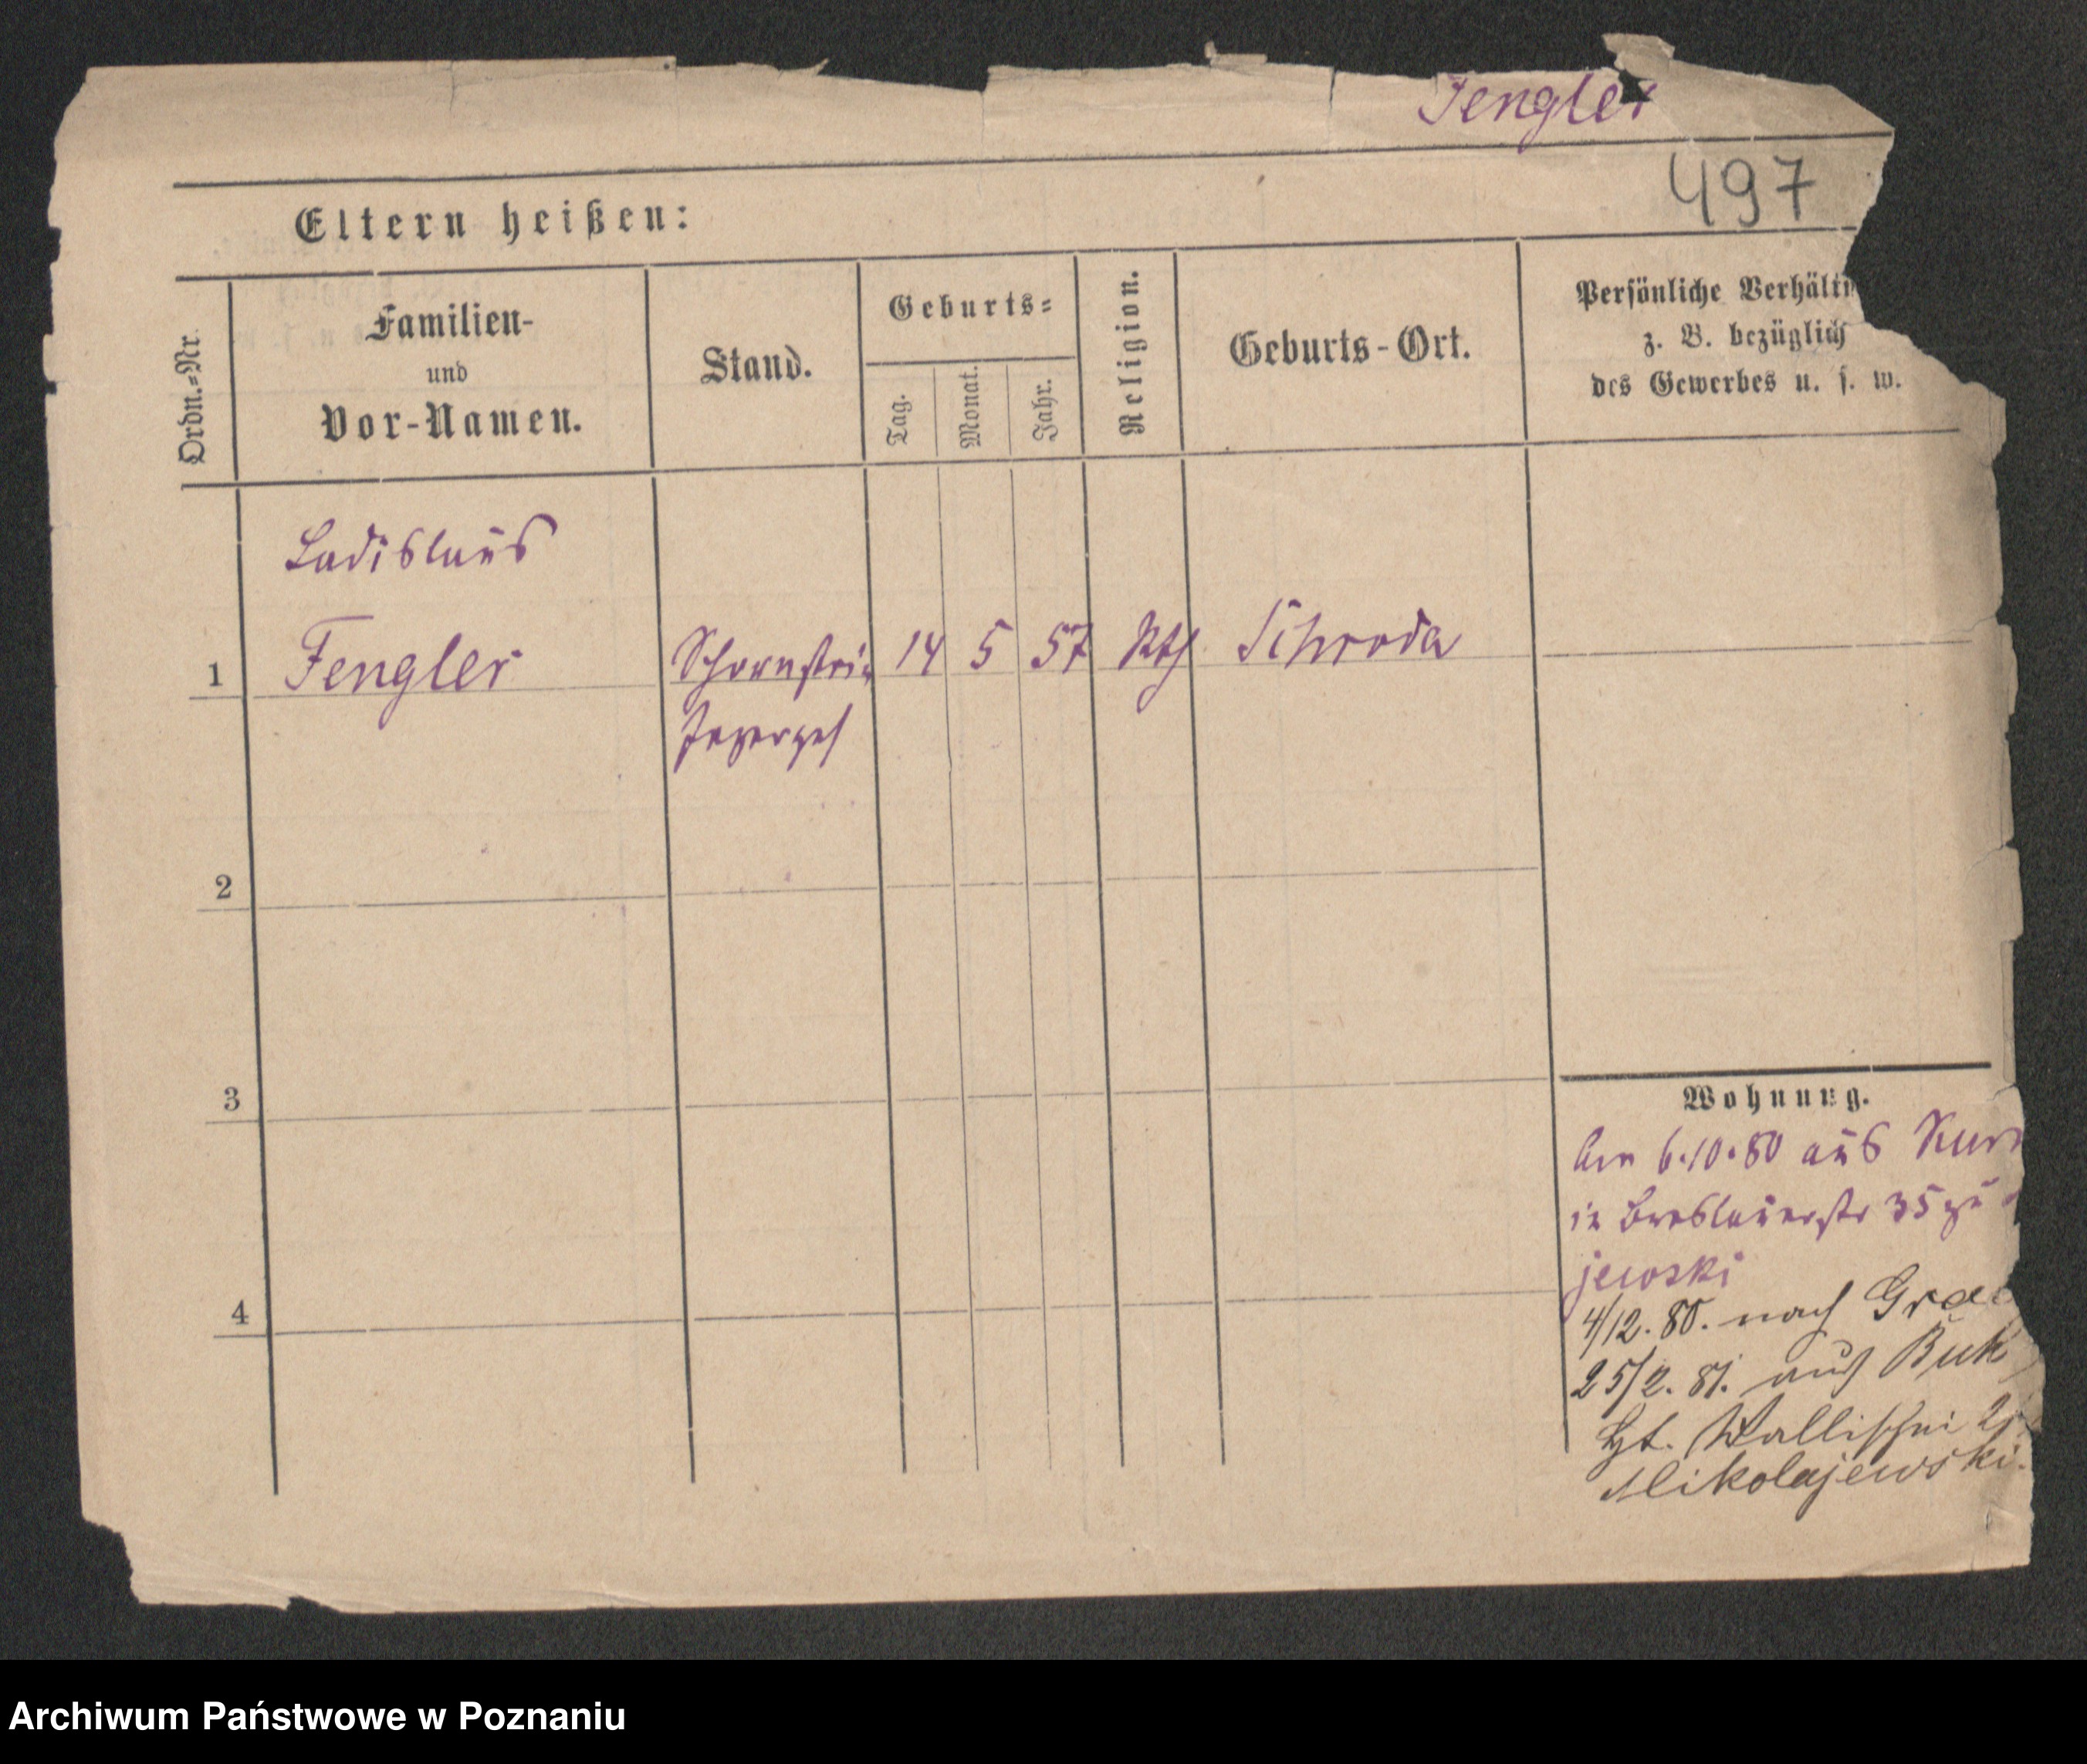 Fengler
497
Eltern heißen:
Ordn.-Nr.
Familien-
und
Vor-Namen.
Stand.
Geburts-
Tag.
Monat.
Jahr.
Religion.
Geburts-Ort.
Persönliche Verhält
z. B. bezüglich
des Gewerbes u. s. w.
Ladislaus
1 Fengler Schornstein 14 5 57 Kth Schroda
fegerges
2
3
4
Wohnung.
Am 6.10.80 aus Kur
in Breslauerstr 35 zu
jewski
4/12. 80. nach
25/2. 81. aus Buk
Wallischei
Mikolajewski.
Archiwum Państwowe w Poznaniu